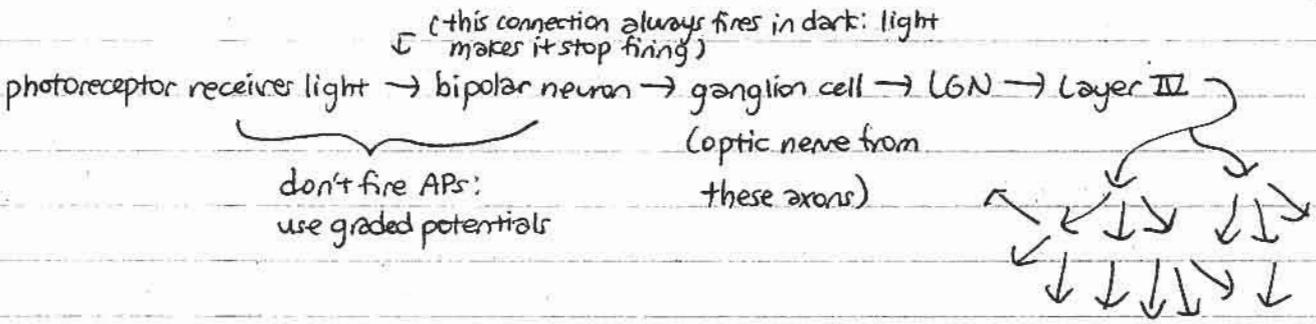 (this connection always fires in dark: light
makes it stop firing)
photoreceptor receives light → bipolar neuron → ganglion cell → LGN → Layer IV
don't fire APs:
use graded potentials
(optic nerve from
these axons)